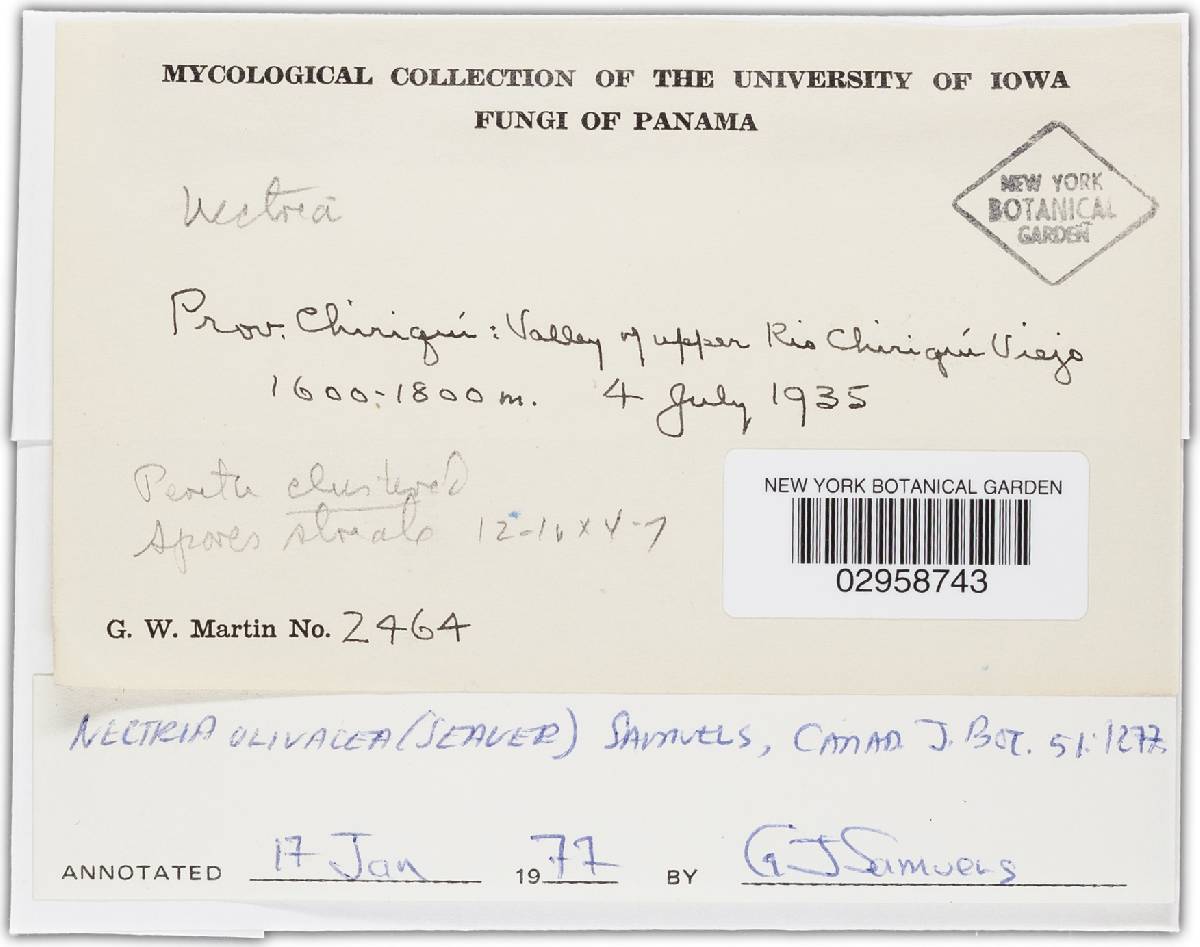 MYCOLOGICAL COLLECTION OF THE UNIVERSITY OF IOWA
FUNGI OF PANAMA
NEW YORK
BOTANICAL
GARDEN
Nectria
Prov. Chiriquí: Valley of upper Rio Chiriquí Viejo
1600-1800 m. 4 July 1935
Perith clustered
Spores striate 12-16 x 4-7
NEW YORK BOTANICAL GARDEN
02958743
G. W. Martin No. 2464
NECTRIA OLIVACEA (SEAVER) SAMUELS, CANAD. J. BOT. 51: 1277
ANNOTATED 17 Jan 1977 BY G J Samuels